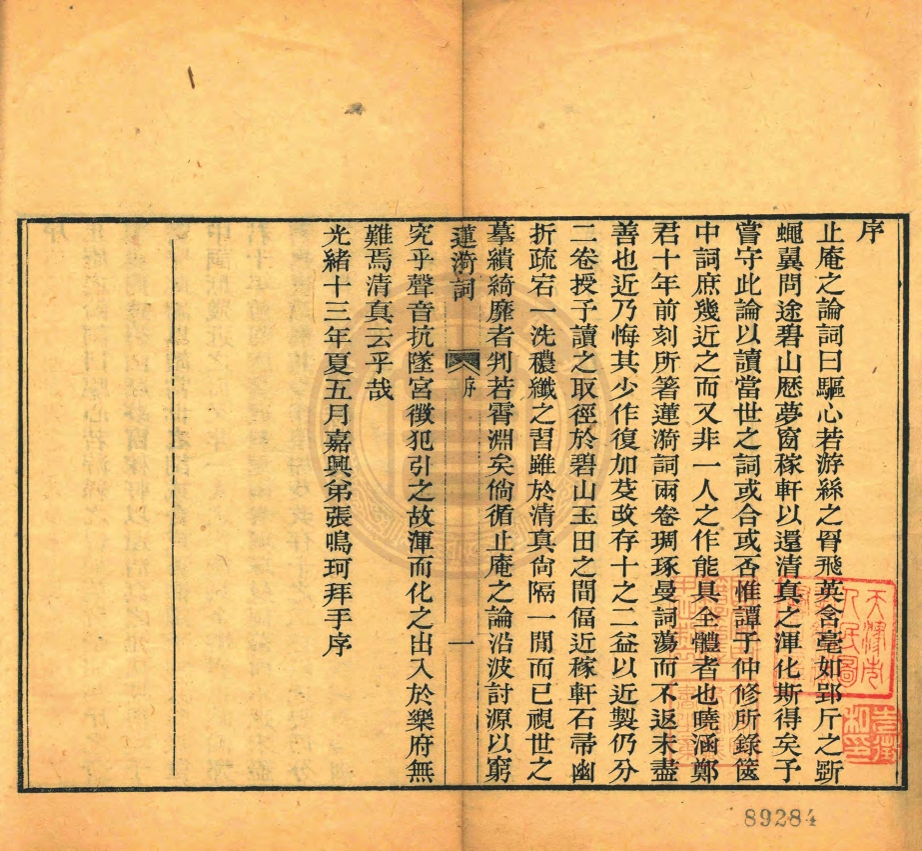 序
止庵之論詞曰驅心若游絲之罥飛英含毫如郢斤之斲
蠅翼問途碧山歷夢窗稼軒以還清真之渾化斯得矣予
嘗守此論以讀當世之詞或合或否惟譚子仲修所錄篋
中詞庶幾近之而又非一人之作能具全體者也曉涵鄭
君十年前刻所箸蓮漪詞兩卷琱琢曼詞蕩而不返未盡
善也近乃悔其少作復加芟改存十之二益以近製仍分
二卷授予讀之取徑於碧山玉田之間偪近稼軒石帚幽
折疏宕一洗穠纖之習雖於清真尙隔一閒而已視世之
摹繢綺靡者判若霄淵矣倘循止庵之論沿波討源以窮
蓮漪詞 序 一
究乎聲音抗墜宮徵犯引之故渾而化之出入於樂府無
難焉清真云乎哉
光緒十三年夏五月嘉興弟張鳴珂拜手序
天津市
人民圖
89284